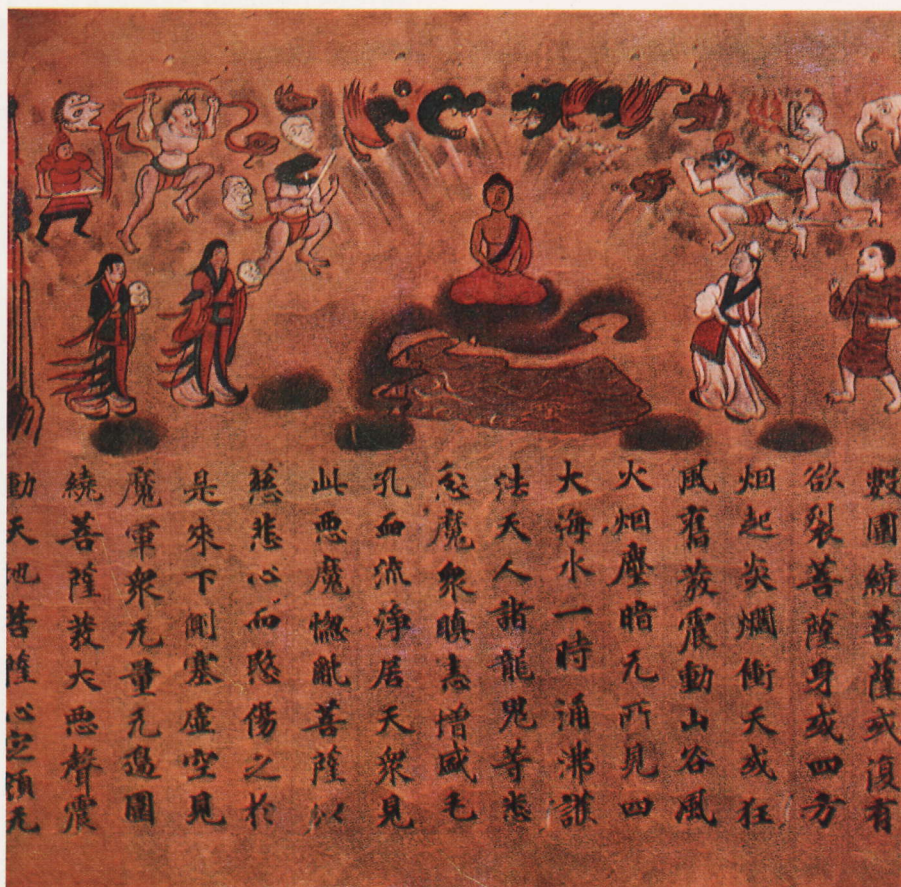 數圍繞菩薩或復有
欲裂菩薩身或四方
烟起炎爓衝天或狂
風奮發震動山谷風
火烟塵暗无所見四
大海水一時涌沸護
法天人諸龍鬼等悉
忿魔衆瞋恚增盛毛
孔血流淨居天衆見
此惡魔惱亂菩薩以
慈悲心而愍傷之於
是來下側塞虛空見
魔軍衆无量无邊圍
繞菩薩發大惡聲震
動天地菩薩心定顏无